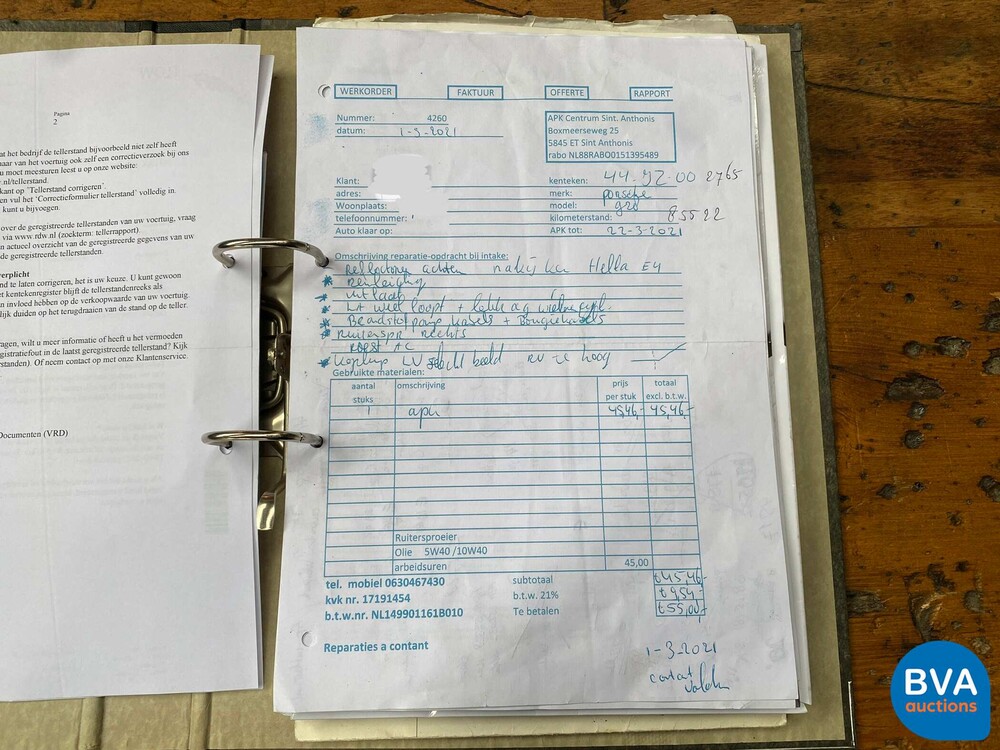 Pagina
2
at het bedrijf de tellerstand bijvoorbeeld niet zelf heeft
naar van het voertuig ook zelf een correctieverzoek bij ons
u moet meesturen leest u op onze website:
v.nl/tellerstand.
kant op 'Tellerstand corrigeren'.
en vul het 'Correctieformulier tellerstand' volledig in.
kunt u bijvoegen.
over de geregistreerde tellerstanden van uw voertuig, vraag
via www.rdw.nl (zoekterm: tellerrapport).
en actueel overzicht van de geregistreerde gegevens van uw
de geregistreerde tellerstanden.
verplicht
nd te laten corrigeren, het is uw keuze. U kunt gewoon
kentekenregister blijft de tellerstandenreeks als
en invloed hebben op de verkoopwaarde van uw voertuig.
lijk duiden op het terugdraaien van de stand op de teller.
ragen, wilt u meer informatie of heeft u het vermoeden
gistratiefout in de laatst geregistreerde tellerstand? Kijk
rstanden). Of neem contact op met onze Klantenservice.
Documenten (VRD)
WERKORDER FAKTUUR OFFERTE RAPPORT
Nummer: 4260
datum: 1-3-2021
APK Centrum Sint. Anthonis
Boxmeerseweg 25
5845 ET Sint Anthonis
rabo NL88RABO0151395489
Klant: kenteken: 44-YZ-00 2765
adres: merk: porsche
Woonplaats: model: 928
telefoonnummer: kilometerstand: 85522
Auto klaar op: APK tot: 22-3-2021
Omschrijving reparatie-opdracht bij intake:
Reflectoren achter Hella E4
uitlaat
LA wiel loopt + lekt
Brandstof + Bougiekabels
Ruitenspr rechts
Koplamp LV beeld RV te hoog
Gebruikte materialen:
aantal stuks omschrijving prijs per stuk totaal excl. b.t.w.
1 apk 45,46,- 45,46,-
Ruitersproeier
Olie 5W40 /10W40
arbeidsuren 45,00
tel. mobiel 0630467430 subtotaal € 45,46,-
kvk nr. 17191454 b.t.w. 21% € 9,54,-
b.t.w.nr. NL149901161B010 Te betalen € 55,00,-
Reparaties a contant
1-3-2021
contant
voldaan
BVA
auctions